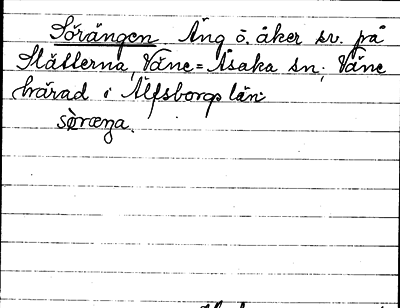 Sörängen Äng o. åker sv. på
Slätterna, Väne-Åsaka sn; Väne
härad i Älfsborgs län.
sö̀ræŋa.